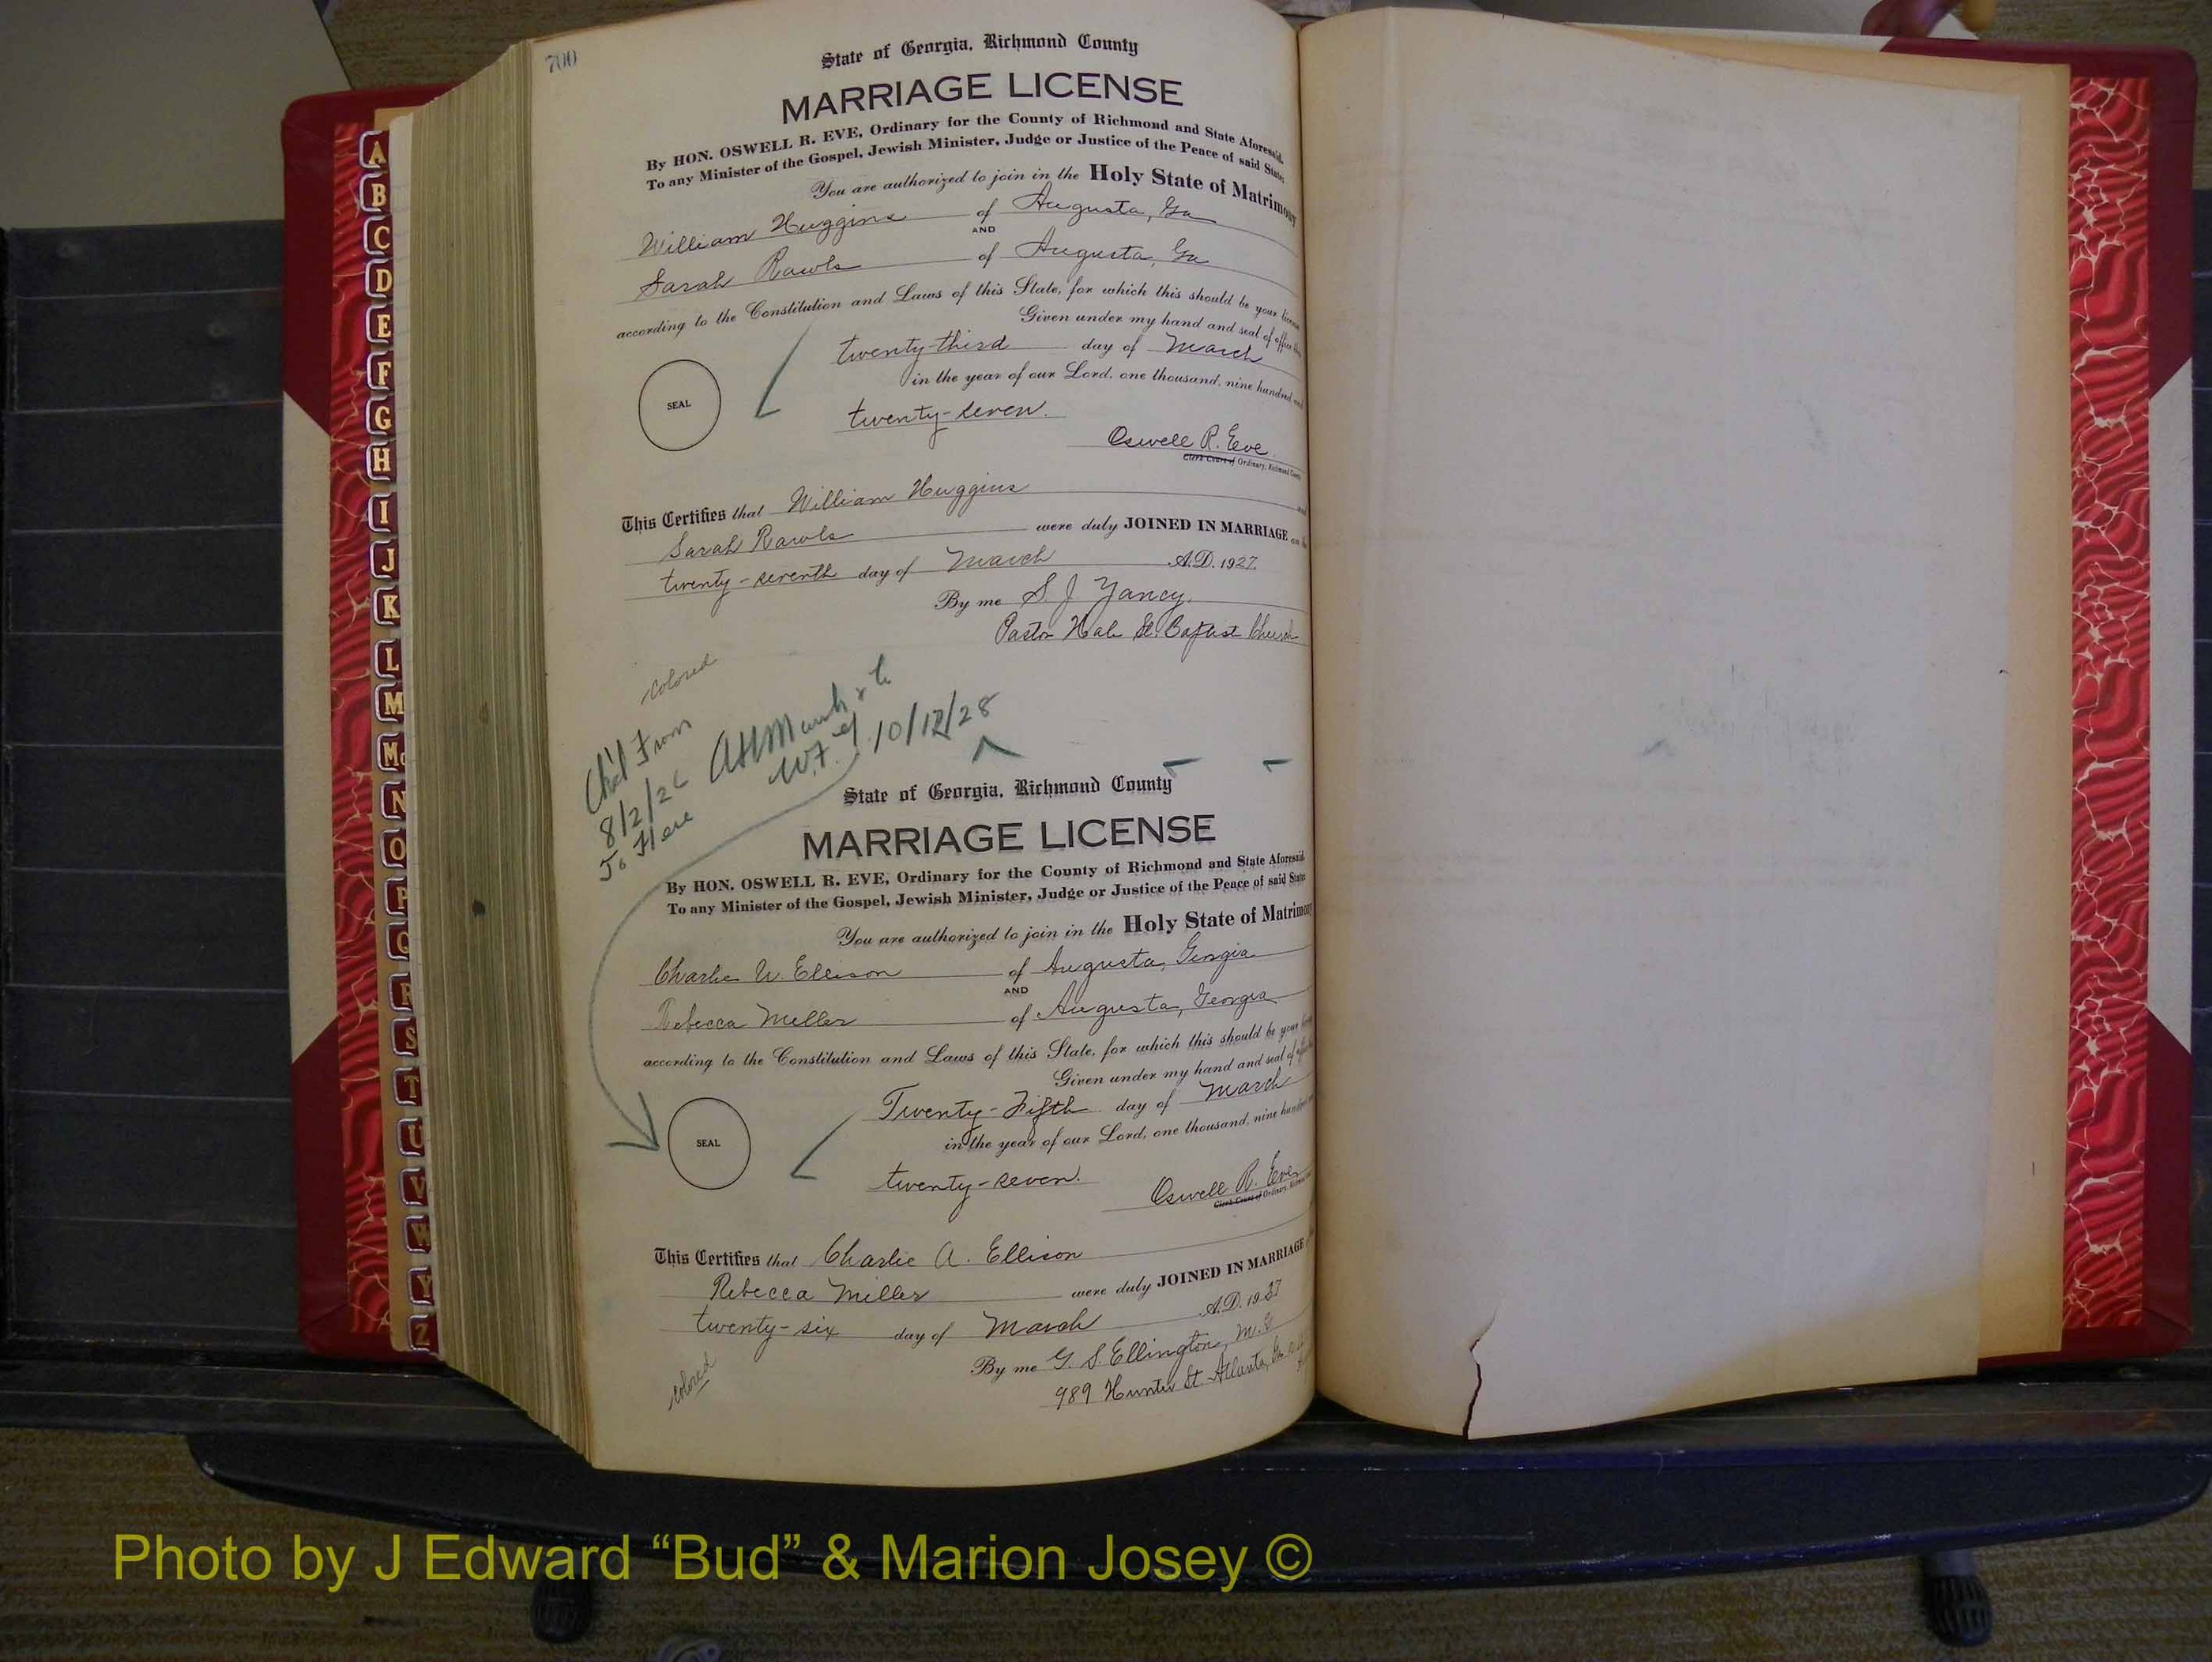 700
State of Georgia, Richmond County
MARRIAGE LICENSE
By HON. OSWELL R. EVE, Ordinary for the County of Richmond and State Aforesaid.
To any Minister of the Gospel, Jewish Minister, Judge or Justice of the Peace of said State:
You are authorized to join in the Holy State of Matrimony
William Huggins of Augusta, Ga
AND
Sarah Rawls of Augusta, Ga
according to the Constitution and Laws of this State, for which this should be your license
Given under my hand and seal of office this
twenty-third day of March
in the year of our Lord, one thousand, nine hundred and
twenty-seven.
SEAL
Oswell R. Eve
Clerk Court of Ordinary, Richmond County
This Certifies that William Huggins and
Sarah Rawls were duly JOINED IN MARRIAGE on the
twenty-seventh day of March A.D. 1927.
By me S. J. Yancy.
Pastor Hale St. Baptist Church
Colored
Ch'd From
8/2/26
To Here
10/12/28
State of Georgia, Richmond County
MARRIAGE LICENSE
By HON. OSWELL R. EVE, Ordinary for the County of Richmond and State Aforesaid.
To any Minister of the Gospel, Jewish Minister, Judge or Justice of the Peace of said State:
You are authorized to join in the Holy State of Matrimony
Charlie W. Ellison of Augusta, Georgia
AND
Rebecca Miller of Augusta, Georgia
according to the Constitution and Laws of this State, for which this should be your
Given under my hand and seal of
Twenty-Fifth day of March
in the year of our Lord, one thousand, nine hundred
twenty-seven.
SEAL
Oswell R. Eve
Clerk Court of Ordinary,
This Certifies that Charlie A. Ellison
Rebecca Miller were duly JOINED IN MARRIAGE
twenty-six day of March A.D. 1927
By me G. S. Ellington,
989 Hunter St Atlanta, Ga.
Colored
A
B
C
D
E
F
G
H
I
J
K
L
M
Mc
N
O
P
Q
R
S
T
U
V
W
Y
Z
Photo by J Edward “Bud” & Marion Josey ©